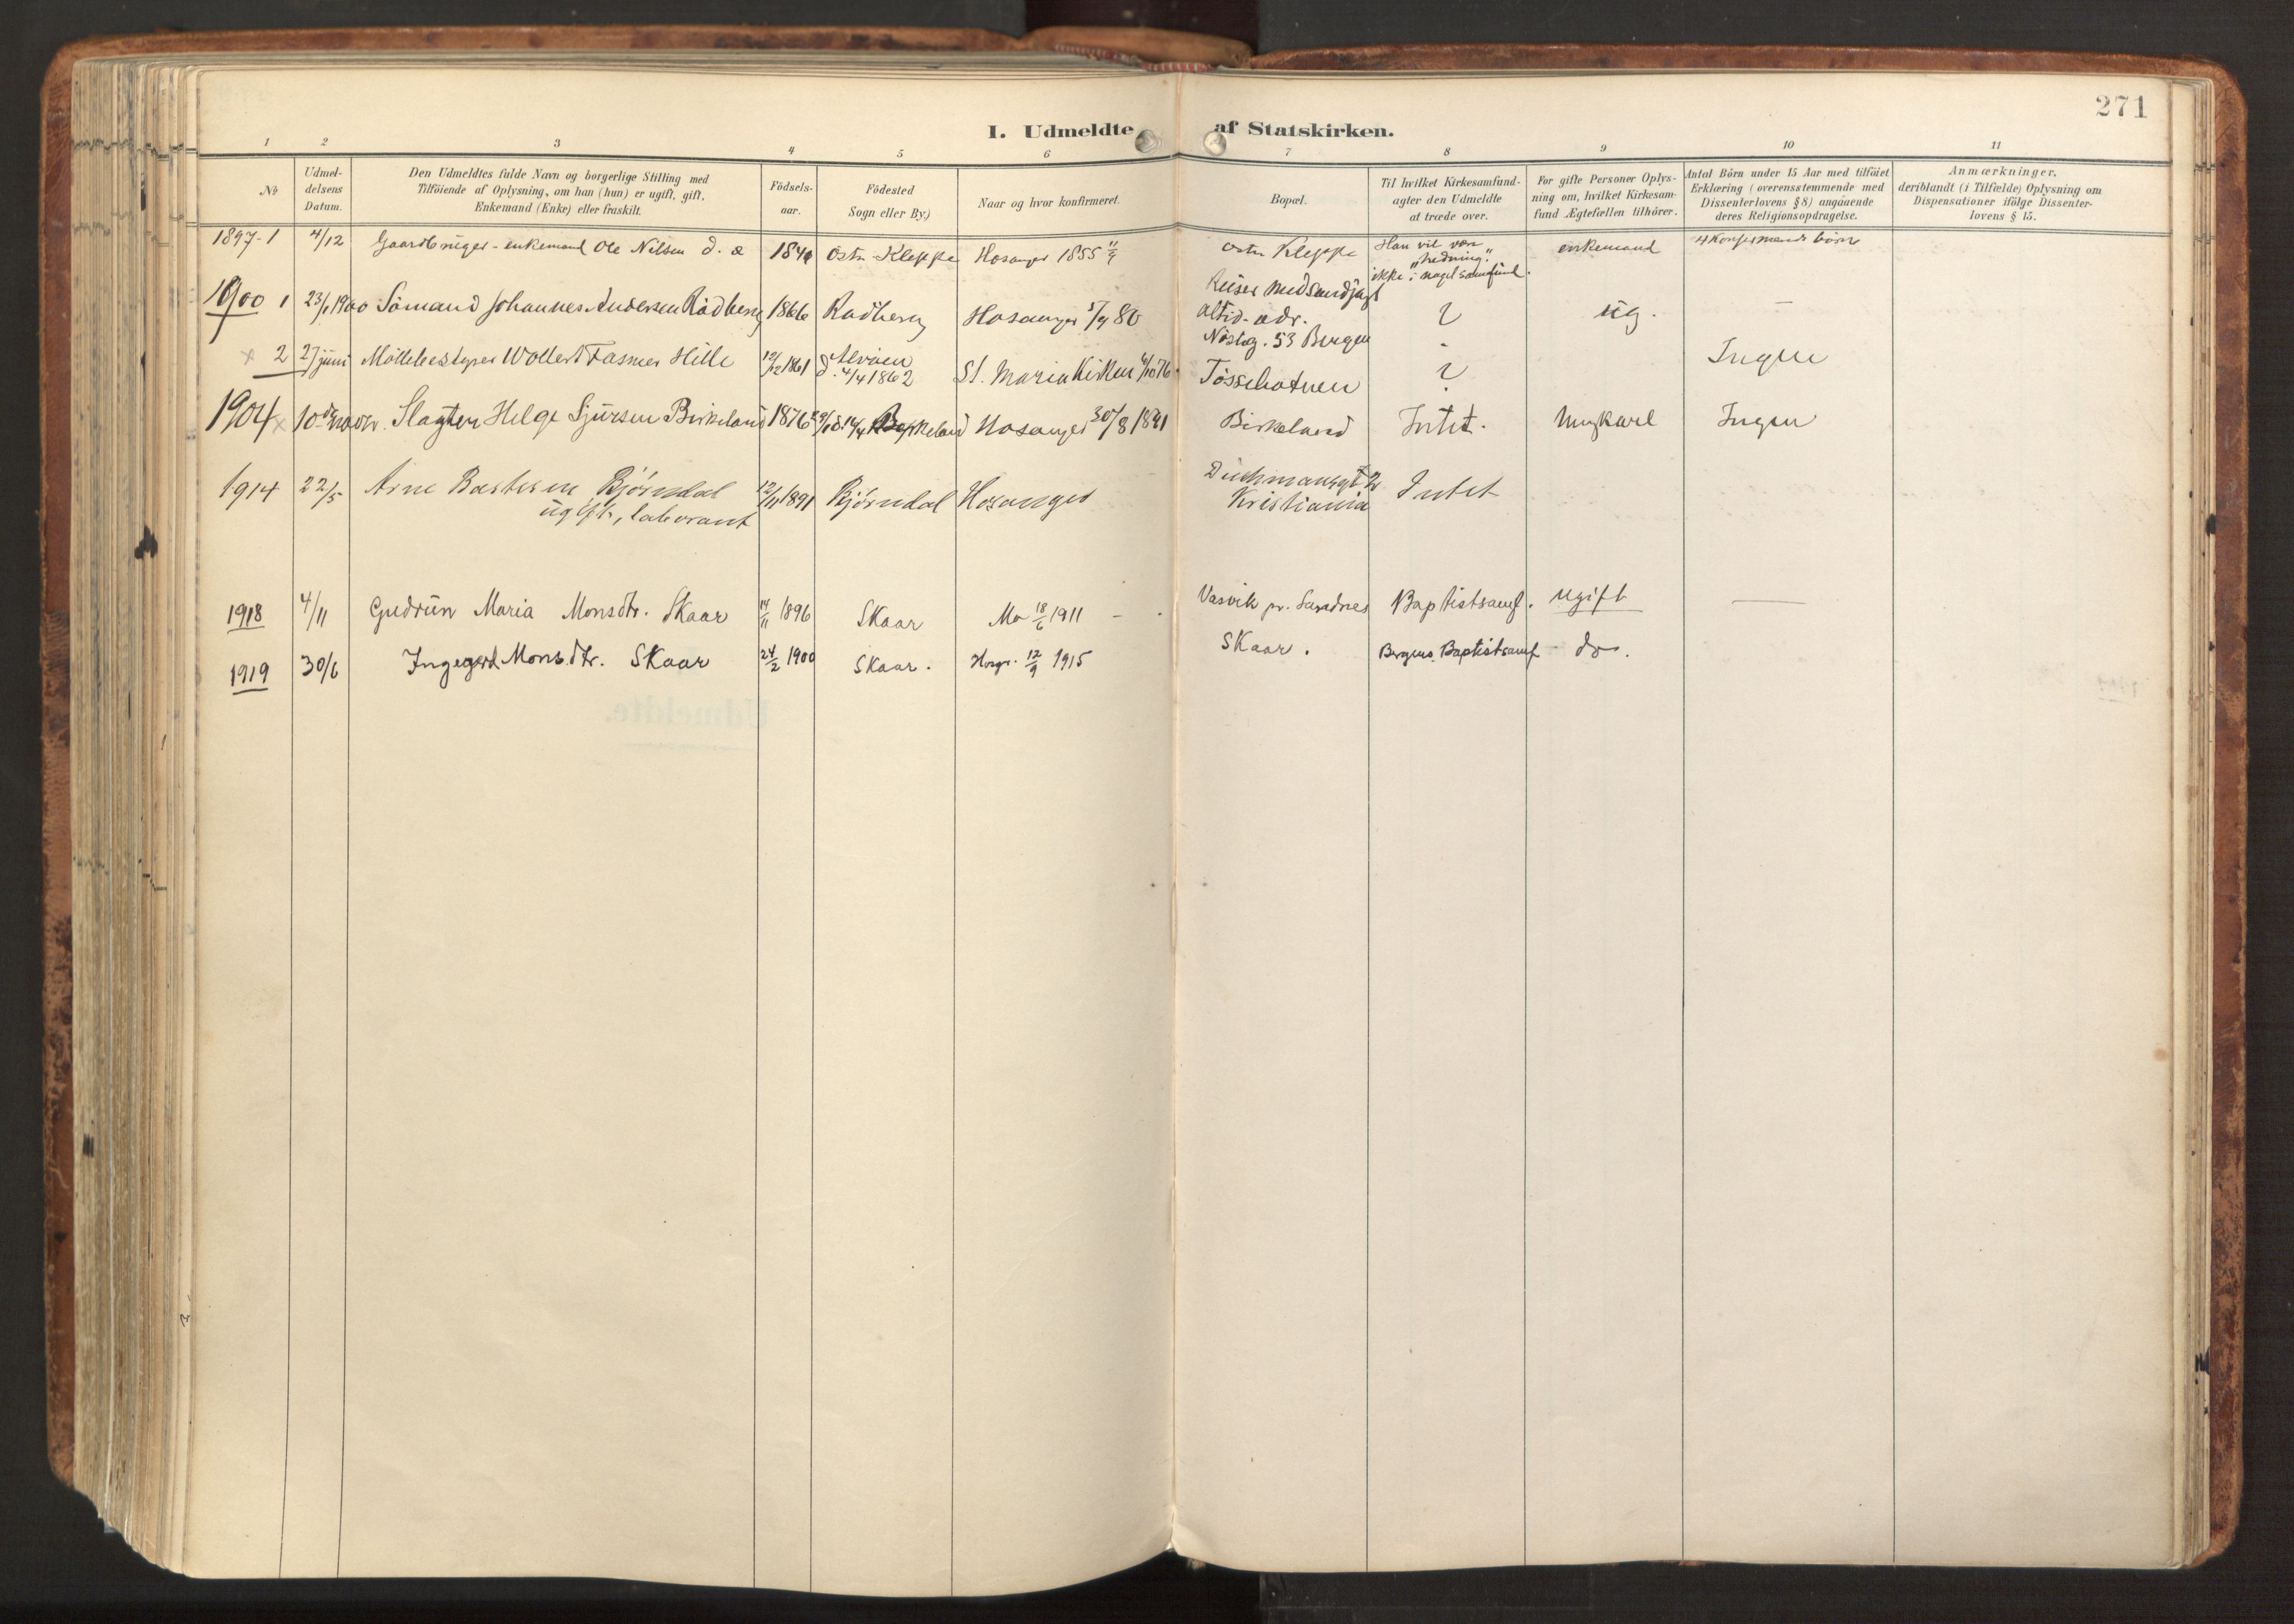 271
I. Udmeldte af Statskirken.
1 2 3 4 5 6 7 8 9 10 11
No
Udmel-
delsens
Datum.
Den Udmeldtes fulde Navn og borgerlige Stilling med
Tilföiende af Oplysning, om han (hun) er ugift, gift,
Enkemand (Enke) eller fraskilt.
Födsels-
aar.
Födested
Sogn eller By.)
Naar og hvor konfirmeret.
Bopæl.
Til hvilket Kirkesamfund-
agter den Udmeldte
at træde over.
For gifte Personer Oplys-
ning om, hvilket Kirkesam-
fund Ægtefællen tilhörer.
Antal Börn under 15 Aar med tilföiet
Erklæring (overensstemmende med
Dissenterlovens §8) angaaende
deres Religionsopdragelse.
Anmærkninger,
deriblandt (i Tilfælde) Oplysning om
Dispensationer ifölge Dissenter-
lovens § 15.
1897-1 4/12 Gaardbruger - enkemand Ole Nilsen d. æ 1840 Østre Kleppe Hosanger 1855 Østre Kleppe
Han vil være
"hedning."
ikke i noget samfund.
enkemand 4 Konfirmerede børn
1900 1 23/1 1900 Sömand Johannes Andersen Rödberg 1866 Rödberg Hosanger 5/9 80
Reiser med Sandjagt
altid - adr.
Nösteg. 53 Bergen
? ug. -
x 2 27 juni Möllebestyrer Wollert Fasmer Hille 12/12 1861
Alvöen
d. 4/4 1862
St. Maria Kirken 1/10 76 Tösschotnen ? Ingen
1904 x 10de novbr. Slagter Helge Sjursen Birkeland 1876 Birkeland Hosanger 30/8 1891 Birkeland Intet. Ungkarl Ingen
1914 22/5 Arne Bastesen Bjørndal
ugift, laborant
12/11 1891 Bjørndal Hosanger
Kristiania
Intet
1918 4/11 Gudrun Maria Monsdtr. Skaar 14/11 1896 Skaar Mo 18/6 1911 - Vasvik pr. Sandnes Baptistsamf. ugift —
1919 30/6 Ingegerd Monsdtr. Skaar 24/2 1900 Skaar. Hosgr. 12/9 1915 Skaar. Bergens Baptistsamf do.